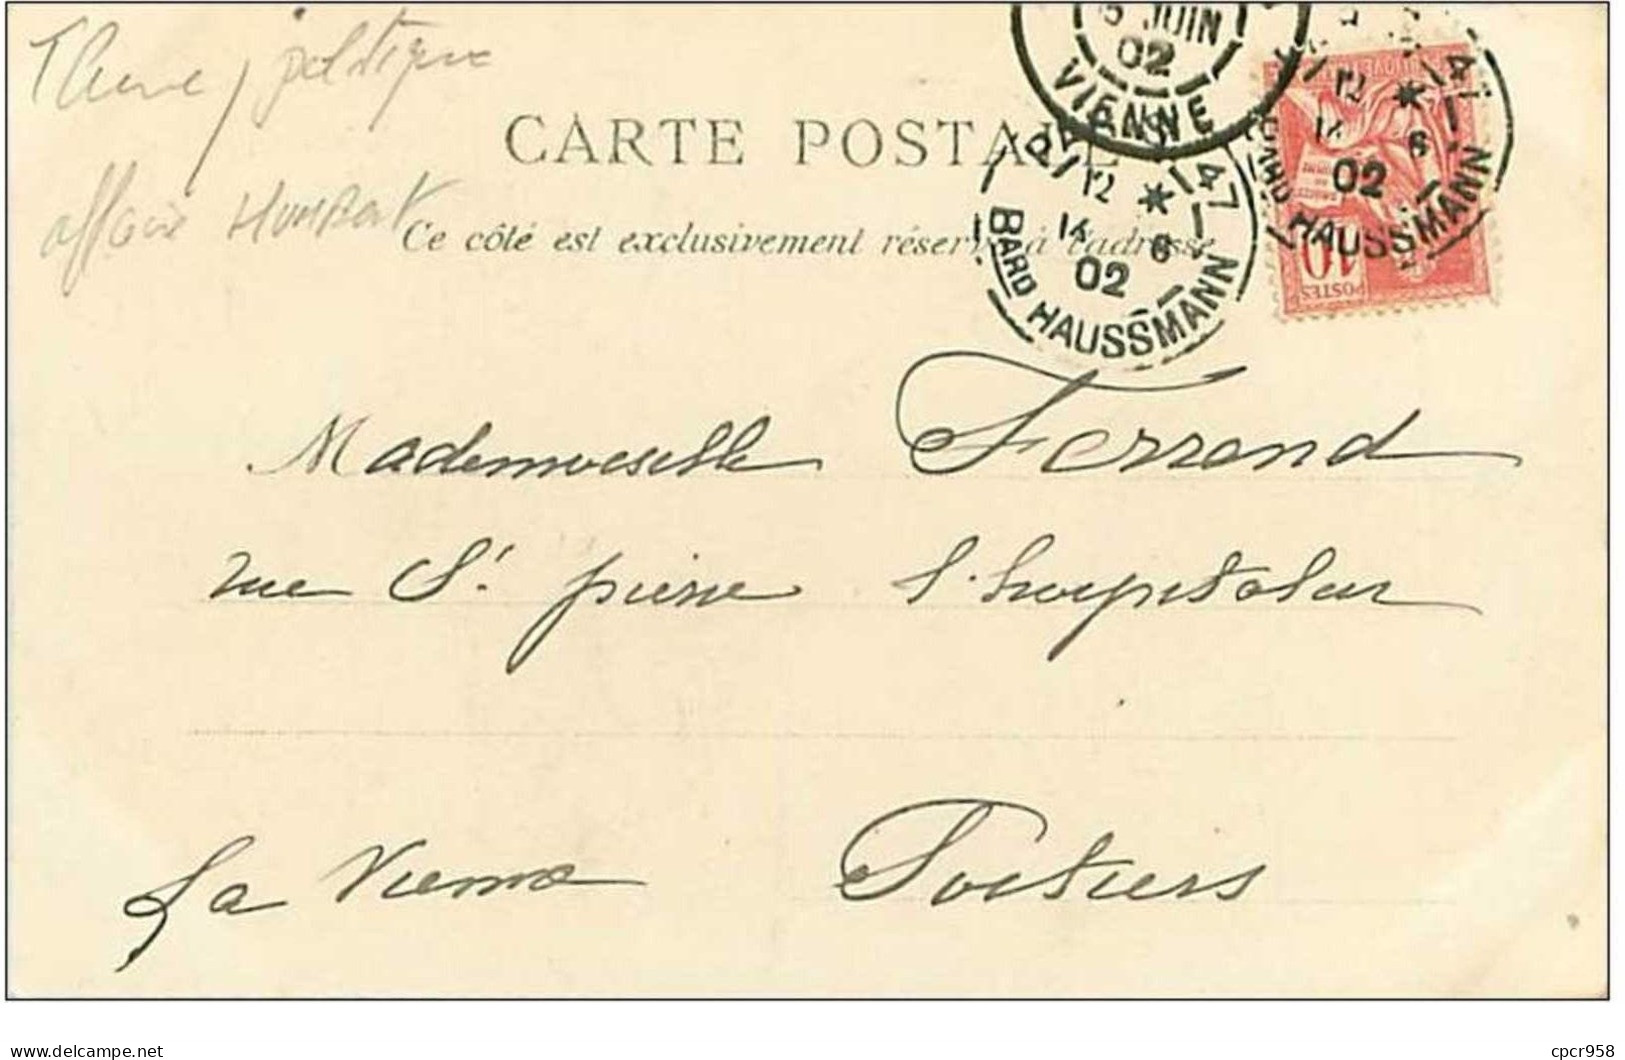 Theme / politique
affaire HUMBERT
CARTE POSTALE
Ce côté est exclusivement réservé à l'adresse
15 JUIN
02
VIENNE
PARIS 47
12 * 14 6
02
BARD HAUSSMANN
47
12 * 14 6
02
BARD HAUSSMANN
10
POSTES
Mademoiselle Ferrand
rue St. pierre l'hospitalier
La Vienne Poitiers
delcampe.net
cpcr958